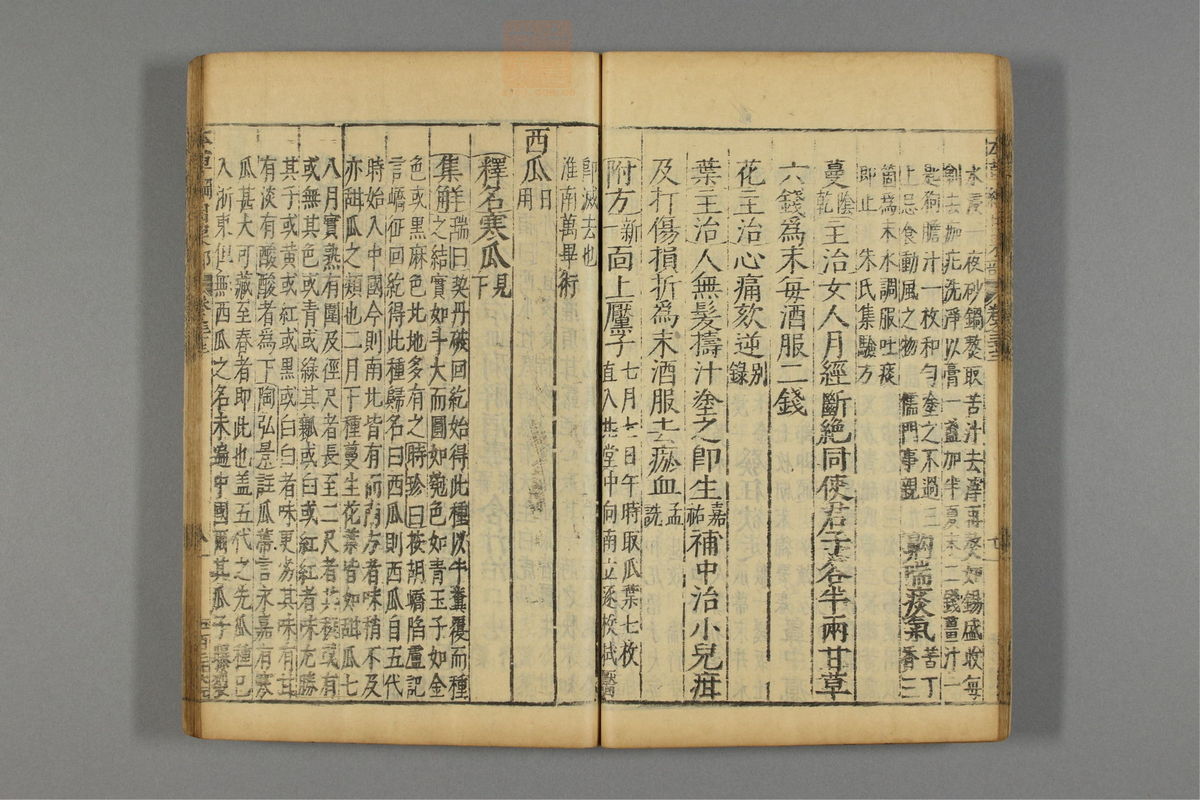 水浸一夜砂鍋熬取苦汁去滓再熬如餳盛收每
剃去痂疕洗淨以膏一盞加半夏末二錢薑汁一
匙狗膽汁一枚和勻塗之不過三
上忌食動風之物 儒門事親 齁喘痰氣苦丁香三
箇為末水調服吐痰
即止 朱氏集驗方
蔓陰乾主治女人月經斷絶同使君子各半兩甘草
六錢為末每酒服二錢
花主治心痛欬逆别錄
葉主治人無髮擣汁塗之即生嘉祐補中治小兒疳
及打傷損折為末酒服去瘀血孟詵
附方一新面上黶子七月七日午時取瓜葉七枚
直入北堂中向南立逐枚拭黶
即滅去也
淮南萬畢術
西瓜日用
釋名寒瓜見下
集解瑞曰契丹破回紇始得此種以牛糞覆而種
之結實如斗大而圓如匏色如青玉子如金
色或黑麻色北地多有之時珍曰按胡嶠陷盧記
言嶠征回紇得此種歸名曰西瓜則西瓜自五代
時始入中國今則南北皆有而南方者味稍不及
亦甜瓜之類也二月下種蔓生花葉皆如甜瓜七
八月實熟有圍及徑尺者長至二尺者其稜或有
或無其色或青或綠其瓤或白或紅紅者味尤勝
其子或黃或紅或黑或白白者味更劣其味有甘
有淡有酸酸者為下陶弘景註瓜蒂言永嘉有寒
瓜甚大可藏至春者即此也蓋五代之先瓜種已
入浙東但無西瓜之名未遍中國爾其瓜子曝裂